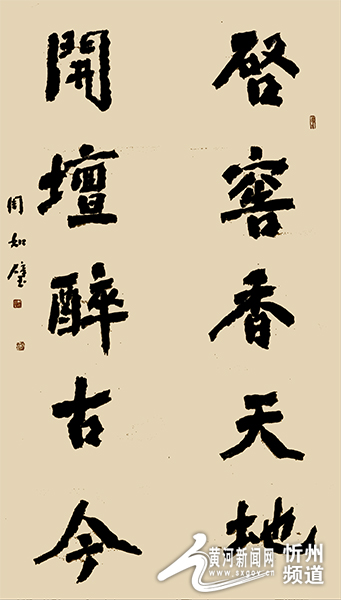 啓窖香天地
開壇醉古今
周知璧
黄河新闻网
www.sxgov.cn
忻州
频道